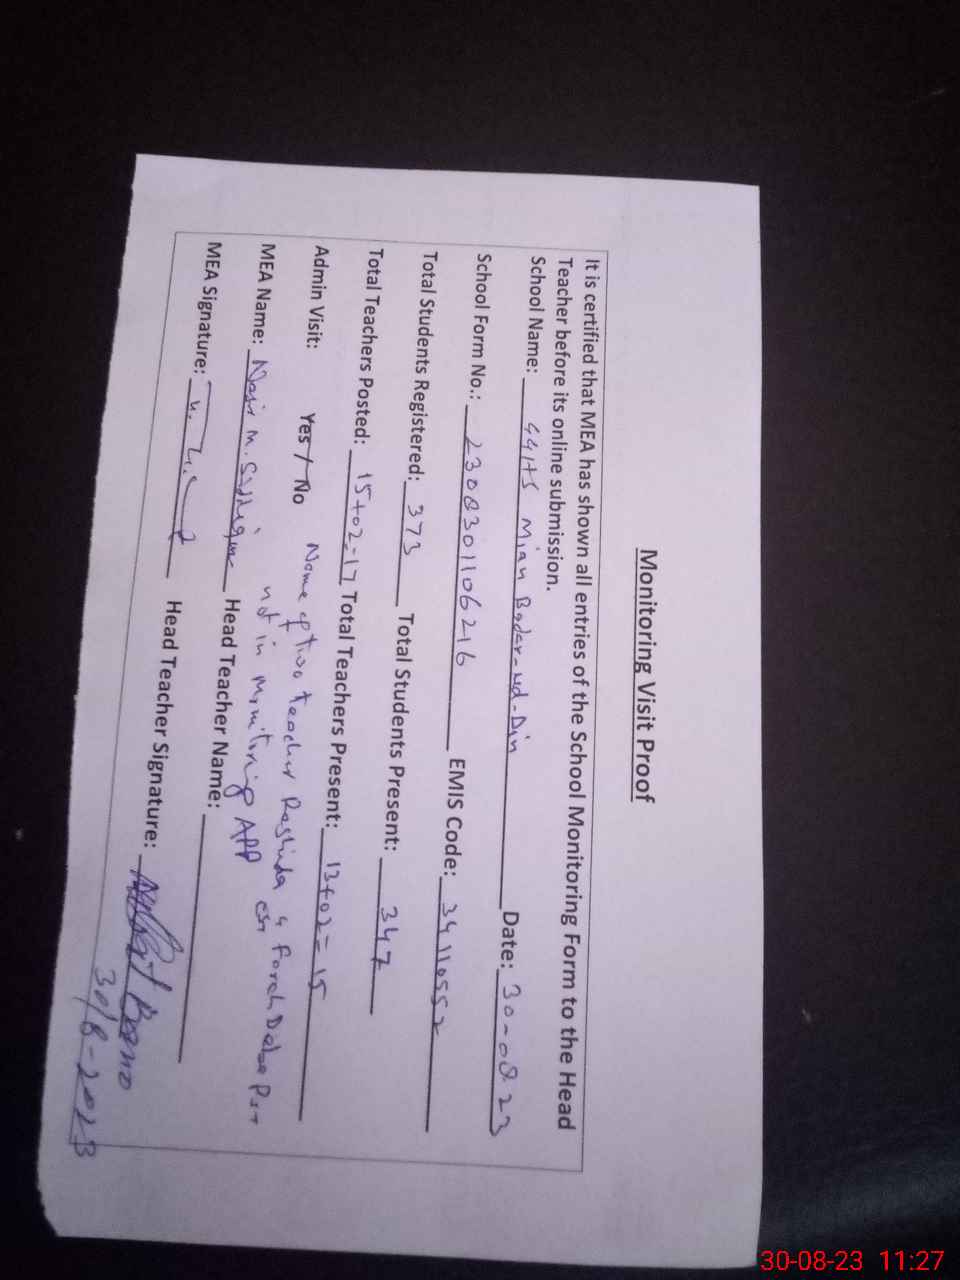 Monitoring Visit Proof
It is certified that MEA has shown all entries of the School Monitoring Form to the Head
Teacher before its online submission.
School Name: GGHS Mian Bader-ud-Din Date: 30-08-23
School Form No.: 2308301106216 EMIS Code: 34110552
Total Students Registered: 373 Total Students Present: 347
Total Teachers Posted: 15+02=17 Total Teachers Present: 13+02=15
Admin Visit: Yes / No Name of two teacher Rashida EST & Farah PST
not in monitoring APP
MEA Name: Nasir M. Head Teacher Name:
MEA Signature: Head Teacher Signature:
30/8-2023
30-08-23 11:27